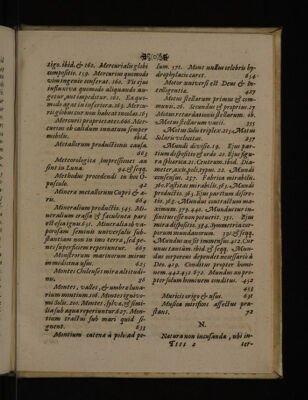 ligo. ibid. & 162. Mercurialis globi
compositio. 159. Mercurius quomodo
vim ingenio conferat. 160. Vis ejus
influxiva quomodo aliquando au-
geatur, aut impeditur. 161. En quo-
modo agat in inferiora. 163. Mercu-
rii globus cur non habeat incolas. 163
Mercurii proprietates. 160. Mer-
curius ob calidum innatum semper
mobilis. ibid.
Metallorum productionis causa.
663
Meteorologicæ impressiones an
sint in Luna. 94. & seqq.
Methodus procedendi in hoc O-
pusculo. 42
Minera metallorum Cupri & æ-
ris. 664
Mineralium productio. 545. Mi-
neralium crassa & faculenta pars
est ossa ignis. 651. Mineralia ob va-
porosam seminis universalis sub-
stantiam non in imo terræ, sed pe-
nes superficiem reperiuntur. 667
Monstrorum marinorum mirum
immodicum usus. 625
Montes Chilenses mira altitudi-
nis. 46
Montes, valles, & umbræ luna-
rium montium. 106. Montes ignivo-
mi Solis. 201. Montes, sylvæ, & simi-
lia sub aqua reperiuntur. 27. Mon-
tium tractus sub mari quid si-
gnent. 633
Montium catena à polo ad po-
lum. 571. Mons nullus celebris hy-
drophylacio caret. 654.
Motor universi est Deus & In-
telligentia. 407
Motus stellarum primus & com-
munis. 26. Secundus & proprius. 27
Motus retardationis stellarum. ib.
Motus stellarum varii. 255
Motus Solis triplex. 234. Motus
Solaris velocitas. 237
Mundi divisio. 19. Ejus par-
tium dispositio & ordo. 20. Ejus figu-
ra sphærica. 21. Centrum. ibid. Dia-
meter, axis, poli, typus. 22. Mundi
conspicuus. 257. Fabrica mirabilis.
360. Vastitas mirabilis. 363. Mundi
productio. 363. Ejus partium disser-
tio. 363. Mundus contra alium ma-
ximum. 379. 440. Mundus cur in-
finitus esse non potuerit. 351. Ejus
mira dispositio. 384. Symmetria cor-
porum mundanorum. 390. & seqq.
Mundus an sit immensus. 412. Cur
non æternus. ibid. & seqq. Mun-
dus corporeus dependet necessariò à
Deo. 419. Conditus propter homi-
nem. 442. 451. 672. Mundus an pro-
pter solum hominem conditus. 452.
453
Muricis origo & usus. 631
Musica mirificos affectus præ-
stans. 72
N.
Natura non incusanda, ubi in-
Iiii 2 tel-